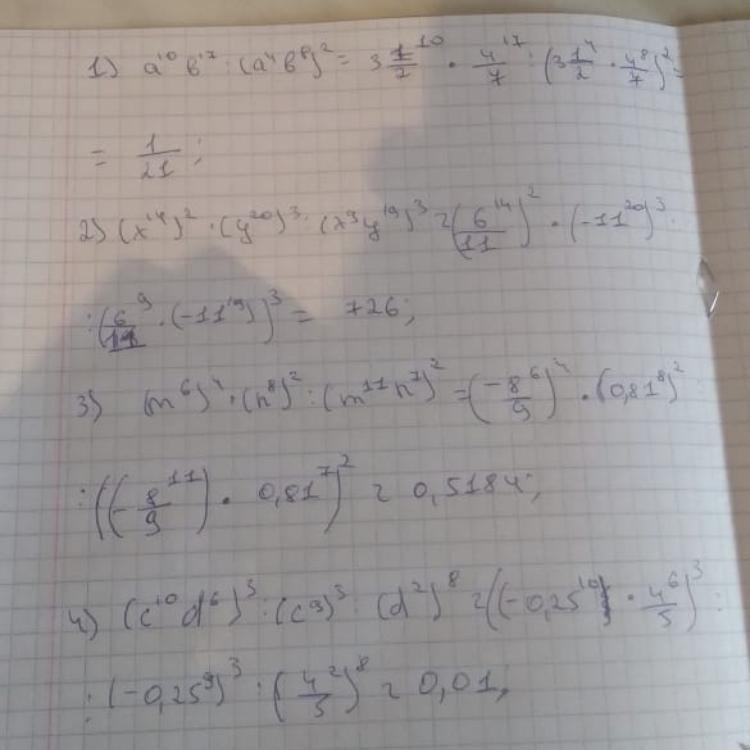 1) a¹⁰ b¹⁷ : (a⁴b⁸)² = 3 1/2¹⁰ · 4/7¹⁷ : (3 1/2⁴ · 4/7⁸)² =
= 1/21;
2) (x¹⁴)² · (y²⁰)³ : (x⁹y¹⁹)³ = (6/11¹⁴)² · (-11²⁰)³ :
: (6/11⁹ · (-11¹⁹))³ = 726;
3) (m⁶)⁴ · (n⁸)² : (m¹¹n⁷)² = (-8/9⁶)⁴ · (0,81⁸)² :
: ((-8/9¹¹) · 0,81⁷)² = 0,5184;
4) (c¹⁰d⁶)³ : (c⁹)³ : (d²)⁸ = ((-0,25¹⁰) · 4/5⁶)³ :
: (-0,25⁹)³ : (4/5²)⁸ = 0,01;